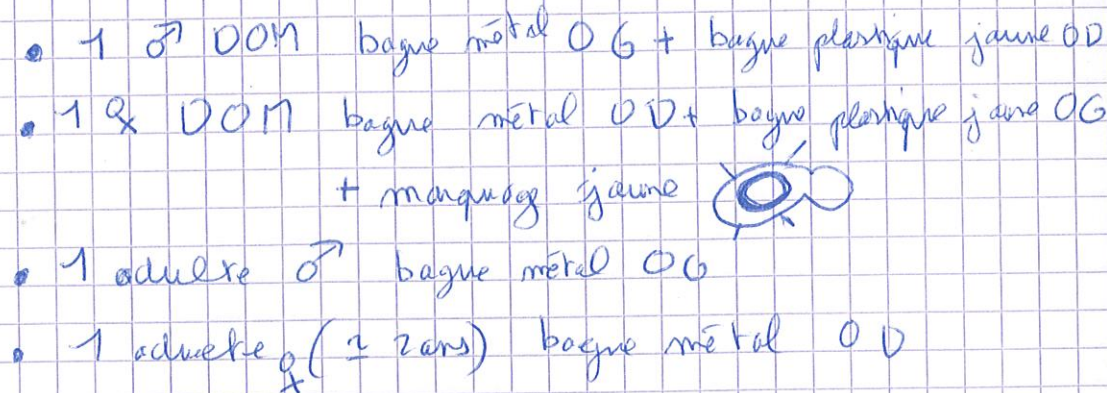 • 1 ♂ DOM bague métal OG + bague plastique jaune OD
• 1 ♀ DOM bague métal OD + bague plastique jaune OG
+ marquage jaune
• 1 adulte ♂ bague métal OG
• 1 adulte ♀ (± 2ans) bague métal OD